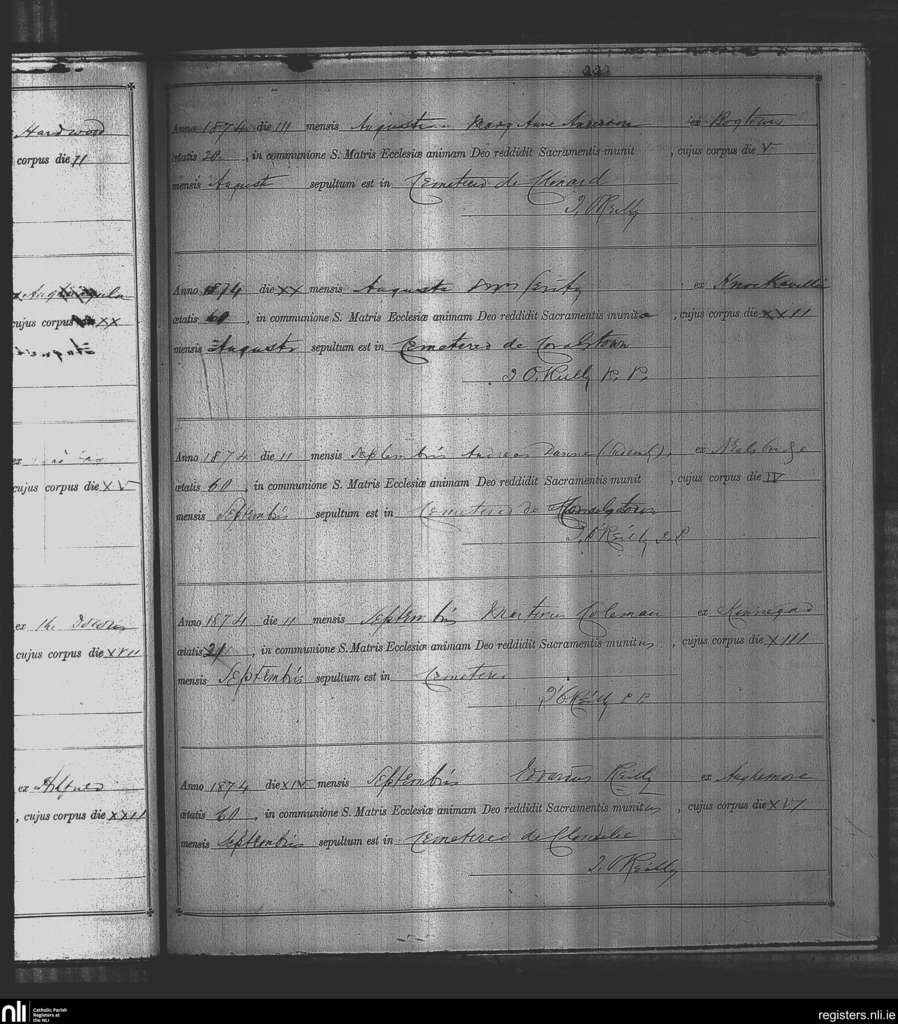 Hardwood
corpus die 11
cujus corpus die XX
August
ex
cujus corpus die XV
ex
cujus corpus die XVII
ex
, cujus corpus die XXII
222
Anno 1874 die III mensis Augusti Mary Anne Anderson ex Bogtown
ætatis 20 , in communione S. Matris Ecclesiæ animam Deo reddidit Sacramentis munit , cujus corpus die V
mensis August sepultum est in Cemeterio de Clonard
J. O'Reilly
Anno 1874 die XX mensis Augusti ex Knockaville
ætatis 60 , in communione S. Matris Ecclesiæ animam Deo reddidit Sacramentis munita , cujus corpus die XXII
mensis Augusti sepultum est in Cemeterio de Coralstown
J O'Reilly P. P.
Anno 1874 die II mensis Septembris Andreas ex
ætatis 60 , in communione S. Matris Ecclesiæ animam Deo reddidit Sacramentis munit , cujus corpus die IV
mensis Septembris sepultum est in Cemeterio de
J. O'Reilly P.P
Anno 1874 die 11 mensis Septembris Coleman ex Kinnegad
ætatis 21 , in communione S. Matris Ecclesiæ animam Deo reddidit Sacramentis munitus , cujus corpus die XIII
mensis Septembris sepultum est in Cemeterio
J O'Reilly P P.
Anno 1874 die XIV mensis Septembris Edvardus Reilly ex Aghamore
ætatis 60 , in communione S. Matris Ecclesiæ animam Deo reddidit Sacramentis munitus , cujus corpus die XVI
mensis Septembris sepultum est in Cemeterio de
J. O'Reilly
nli Catholic Parish
Registers at
the NLI
registers.nli.ie